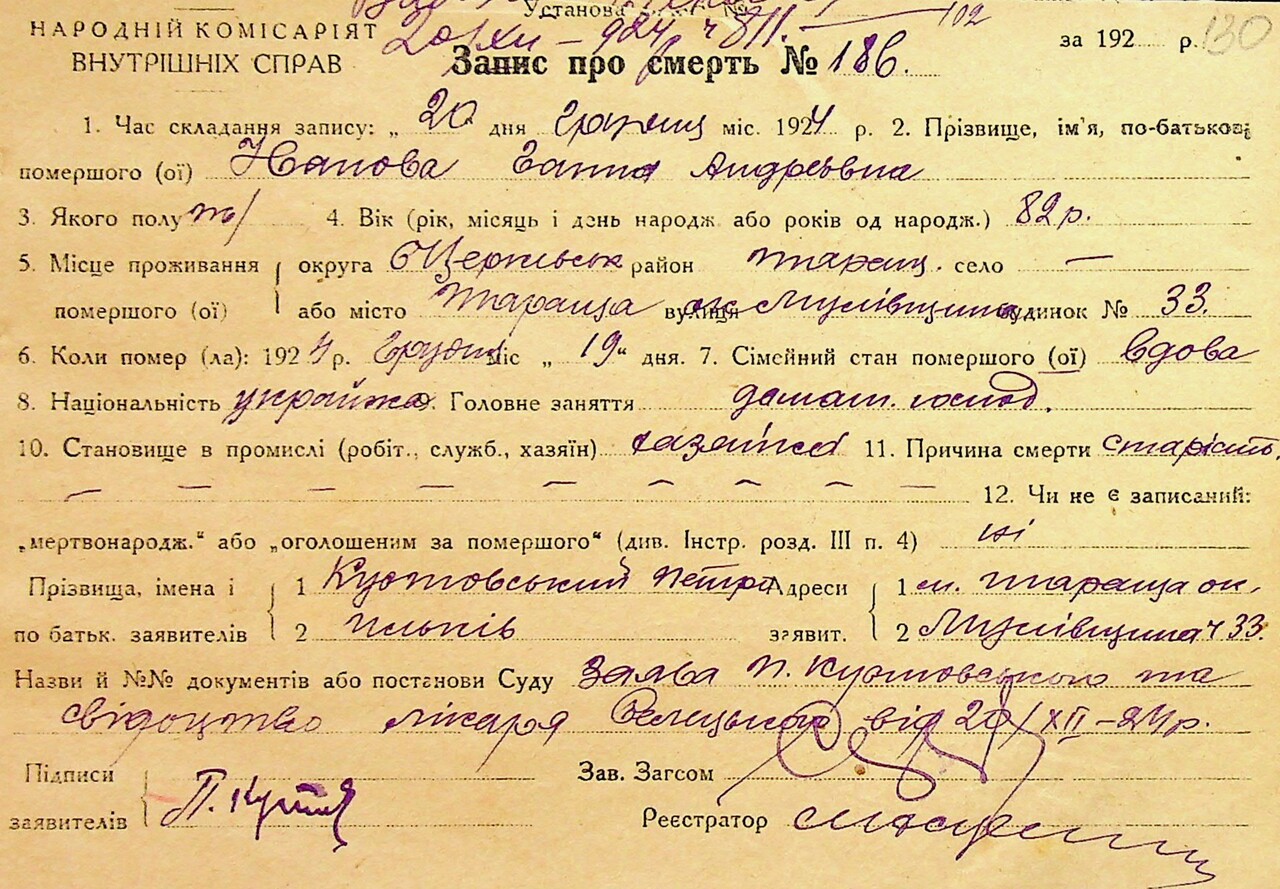 Установа
20/XII – 924 р. ч 811. – 102
НАРОДНІЙ КОМІСАРІЯТ
ВНУТРІШНІХ СПРАВ
за 192 р. 130
Запис про смерть № 186.
1. Час складання запису: „ 20 дня Грудня міс. 1924 р. 2. Прізвище, ім'я, по-батькові
помершого (ої) Ганна Андреєвна
3. Якого полу ж/ 4. Вік (рік, місяць і день народж або років од народж.) 82 р.
5. Місце проживання округа Б Церківськ район Таращ. село —
помершого (ої) або місто Тараща вулиця будинок № 33.
6. Коли помер (ла): 1924 р. Грудня міс „ 19 " дня. 7. Сімейний стан помершого (ої) вдова
8. Національність українка. Головне заняття домаш. господ.
10. Становище в промислі (робіт., служб., хазяїн) хазяйка 11. Причина смерти старість.
— — — — — — — — 12. Чи не є записаний:
„мертвонародж." або „оголошеним за помершого" (див. Інстр. розд. III п. 4) ні
Прізвища, імена і 1 Кутовський Петро Адреси 1 м. Тараща ок.
по батьк. заявителів 2 заявит. 2 ч 33.
Назви й №№ документів або постанови Суду Заява П. Кутовського та
свідоцтво лікаря від 20/XII – 24 р.
Підписи Зав. Загсом
заявителів П. Реєстратор